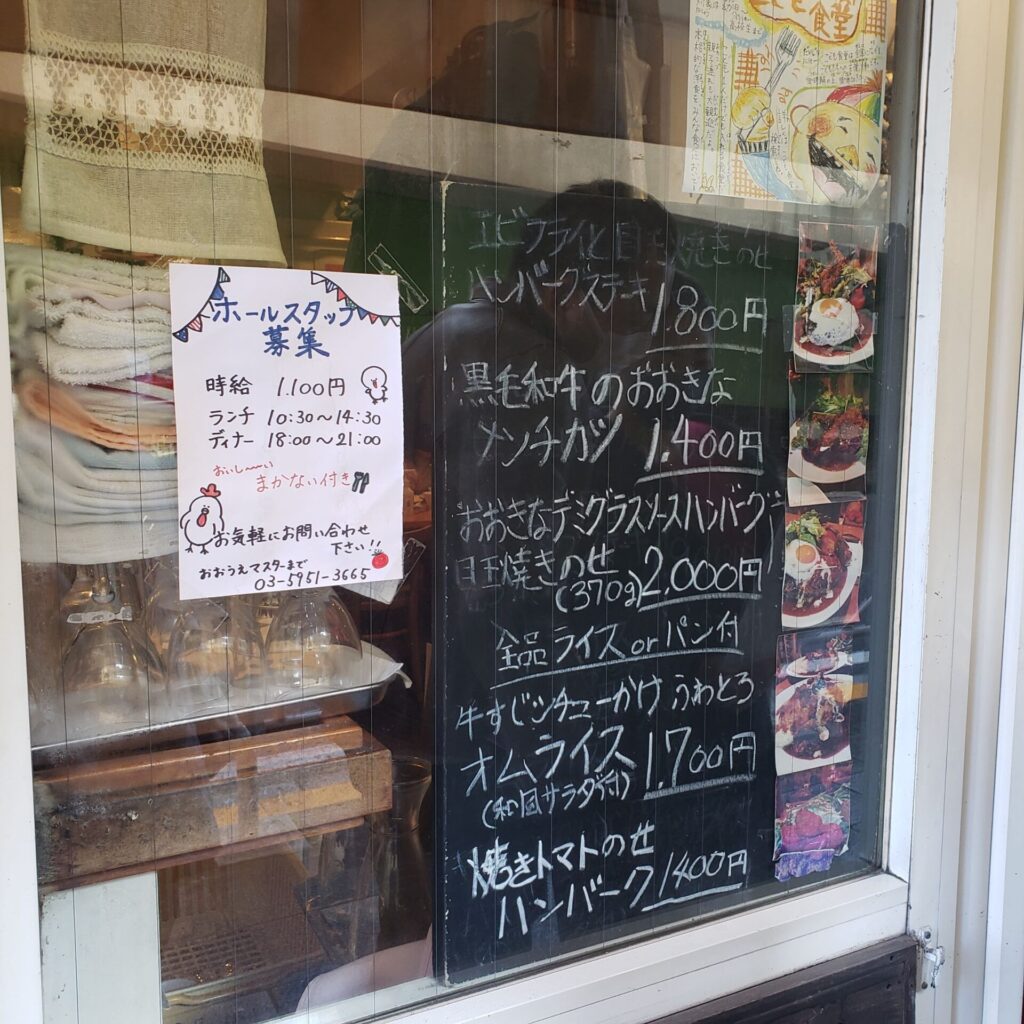 ホールスタッフ
募集
時給 1.100円
ランチ 10:30〜14:30
ディナー 18:00〜21:00
おいし〜〜い
まかない付き
お気軽にお問い合わせ
下さい!!
おおうえマスターまで
03-5951-3665
エビフライと目玉焼きのせ
ハンバーグステーキ 1.800円
黒毛和牛のおおきな
メンチカツ 1.400円
おおきなデミグラスソースハンバーグ
目玉焼きのせ
(370g) 2.000円
全品ライスorパン付
牛すじシチューかけ ふわとろ
オムライス 1.700円
(和風サラダ付)
焼きトマトのせ
ハンバーク 1400円
食堂